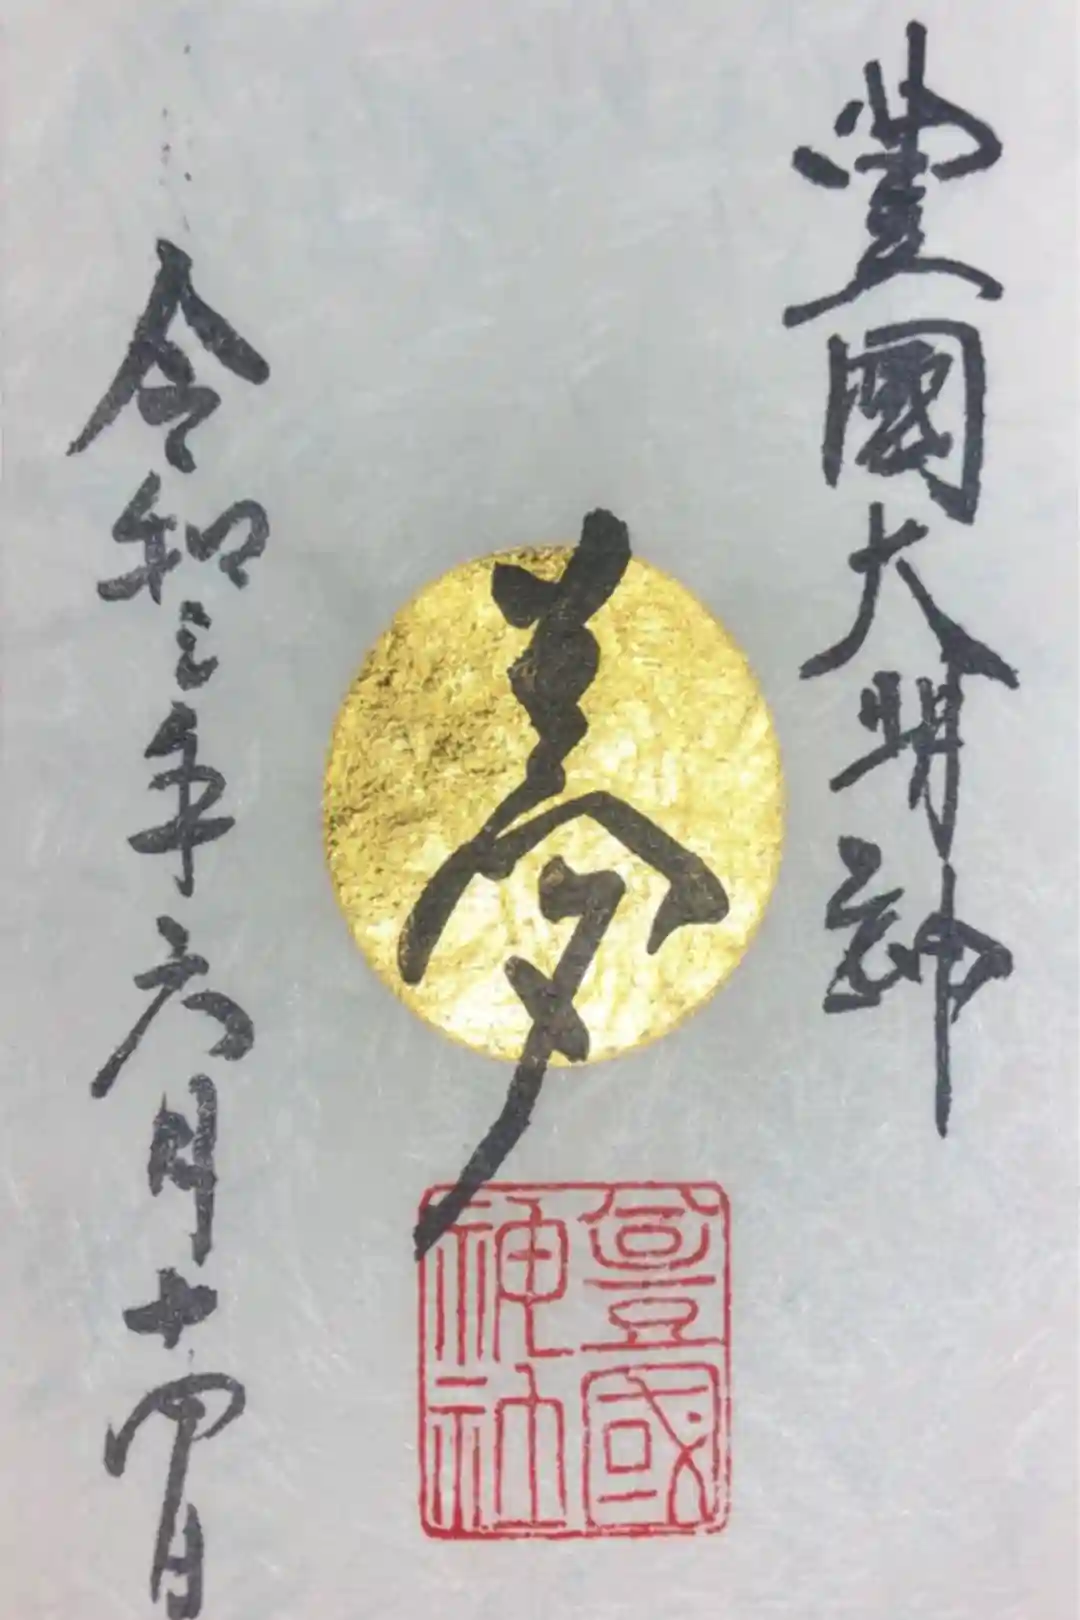 豐國大明神
夢
豐國神社
令和三年六月十四日